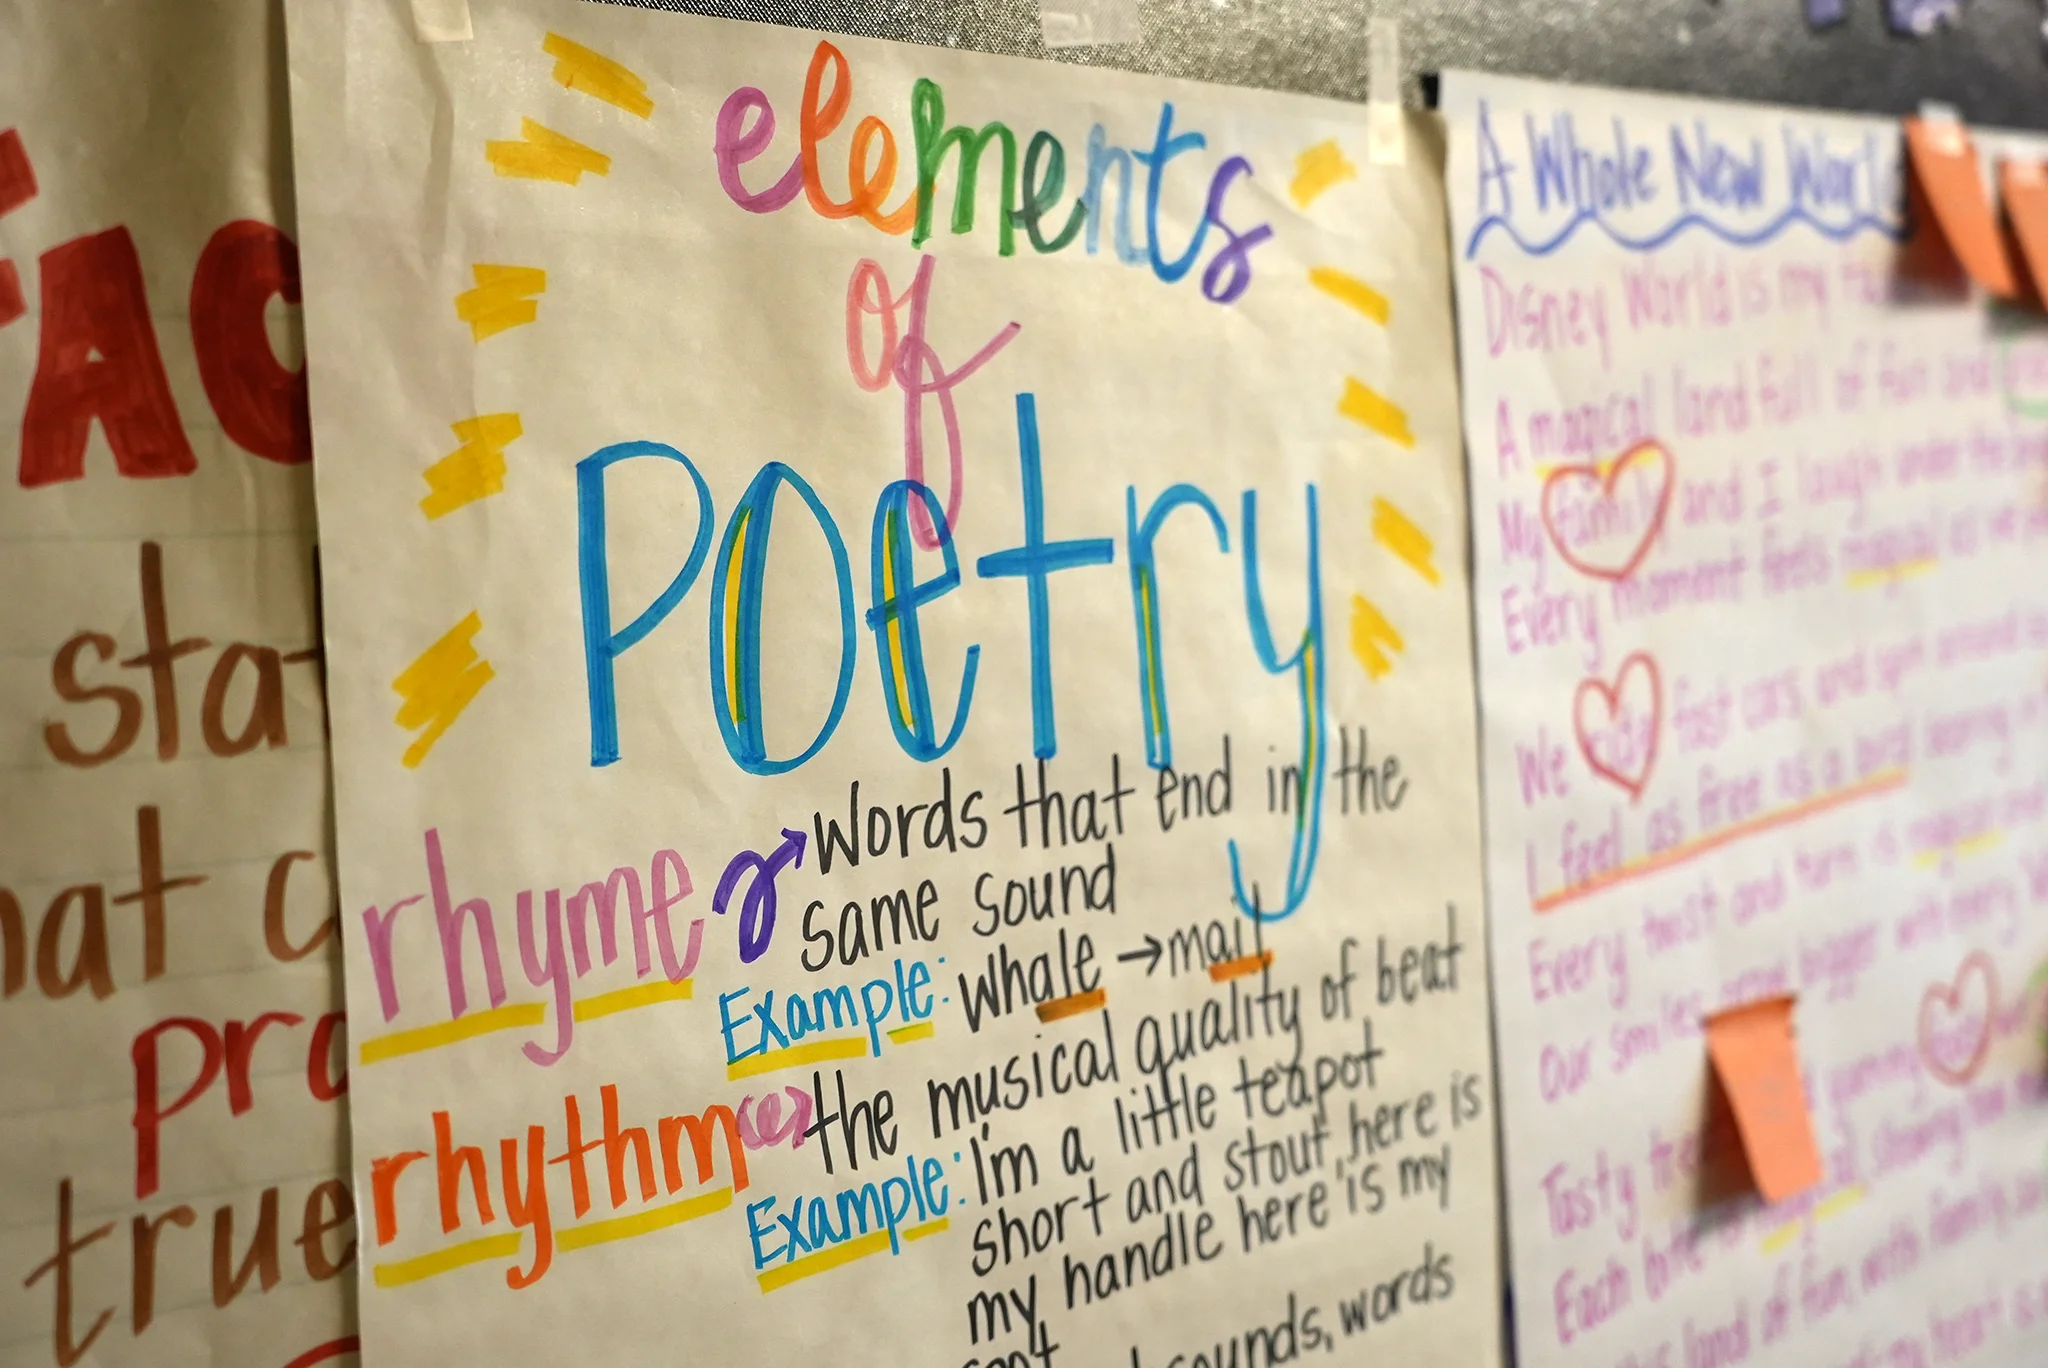 FAC
stat
hat c
pro
true
elements
of
Poetry
rhyme → Words that end in the
same sound
Example: whale → mail
rhythm → the musical quality of beat
Example: I'm a little teapot
short and stout, here is
my handle here is my
spout
sounds, words
A Whole New World
Disney World is my
A magical land full of fun and
My family and I laugh under the
Every moment feels magical as we
We fast cars and spin around
I feel as free as a bird soaring
Every twist and turn is magical
Our smiles grow bigger with every
yummy
Tasty
Each bite
land of fun, with family
my heart is